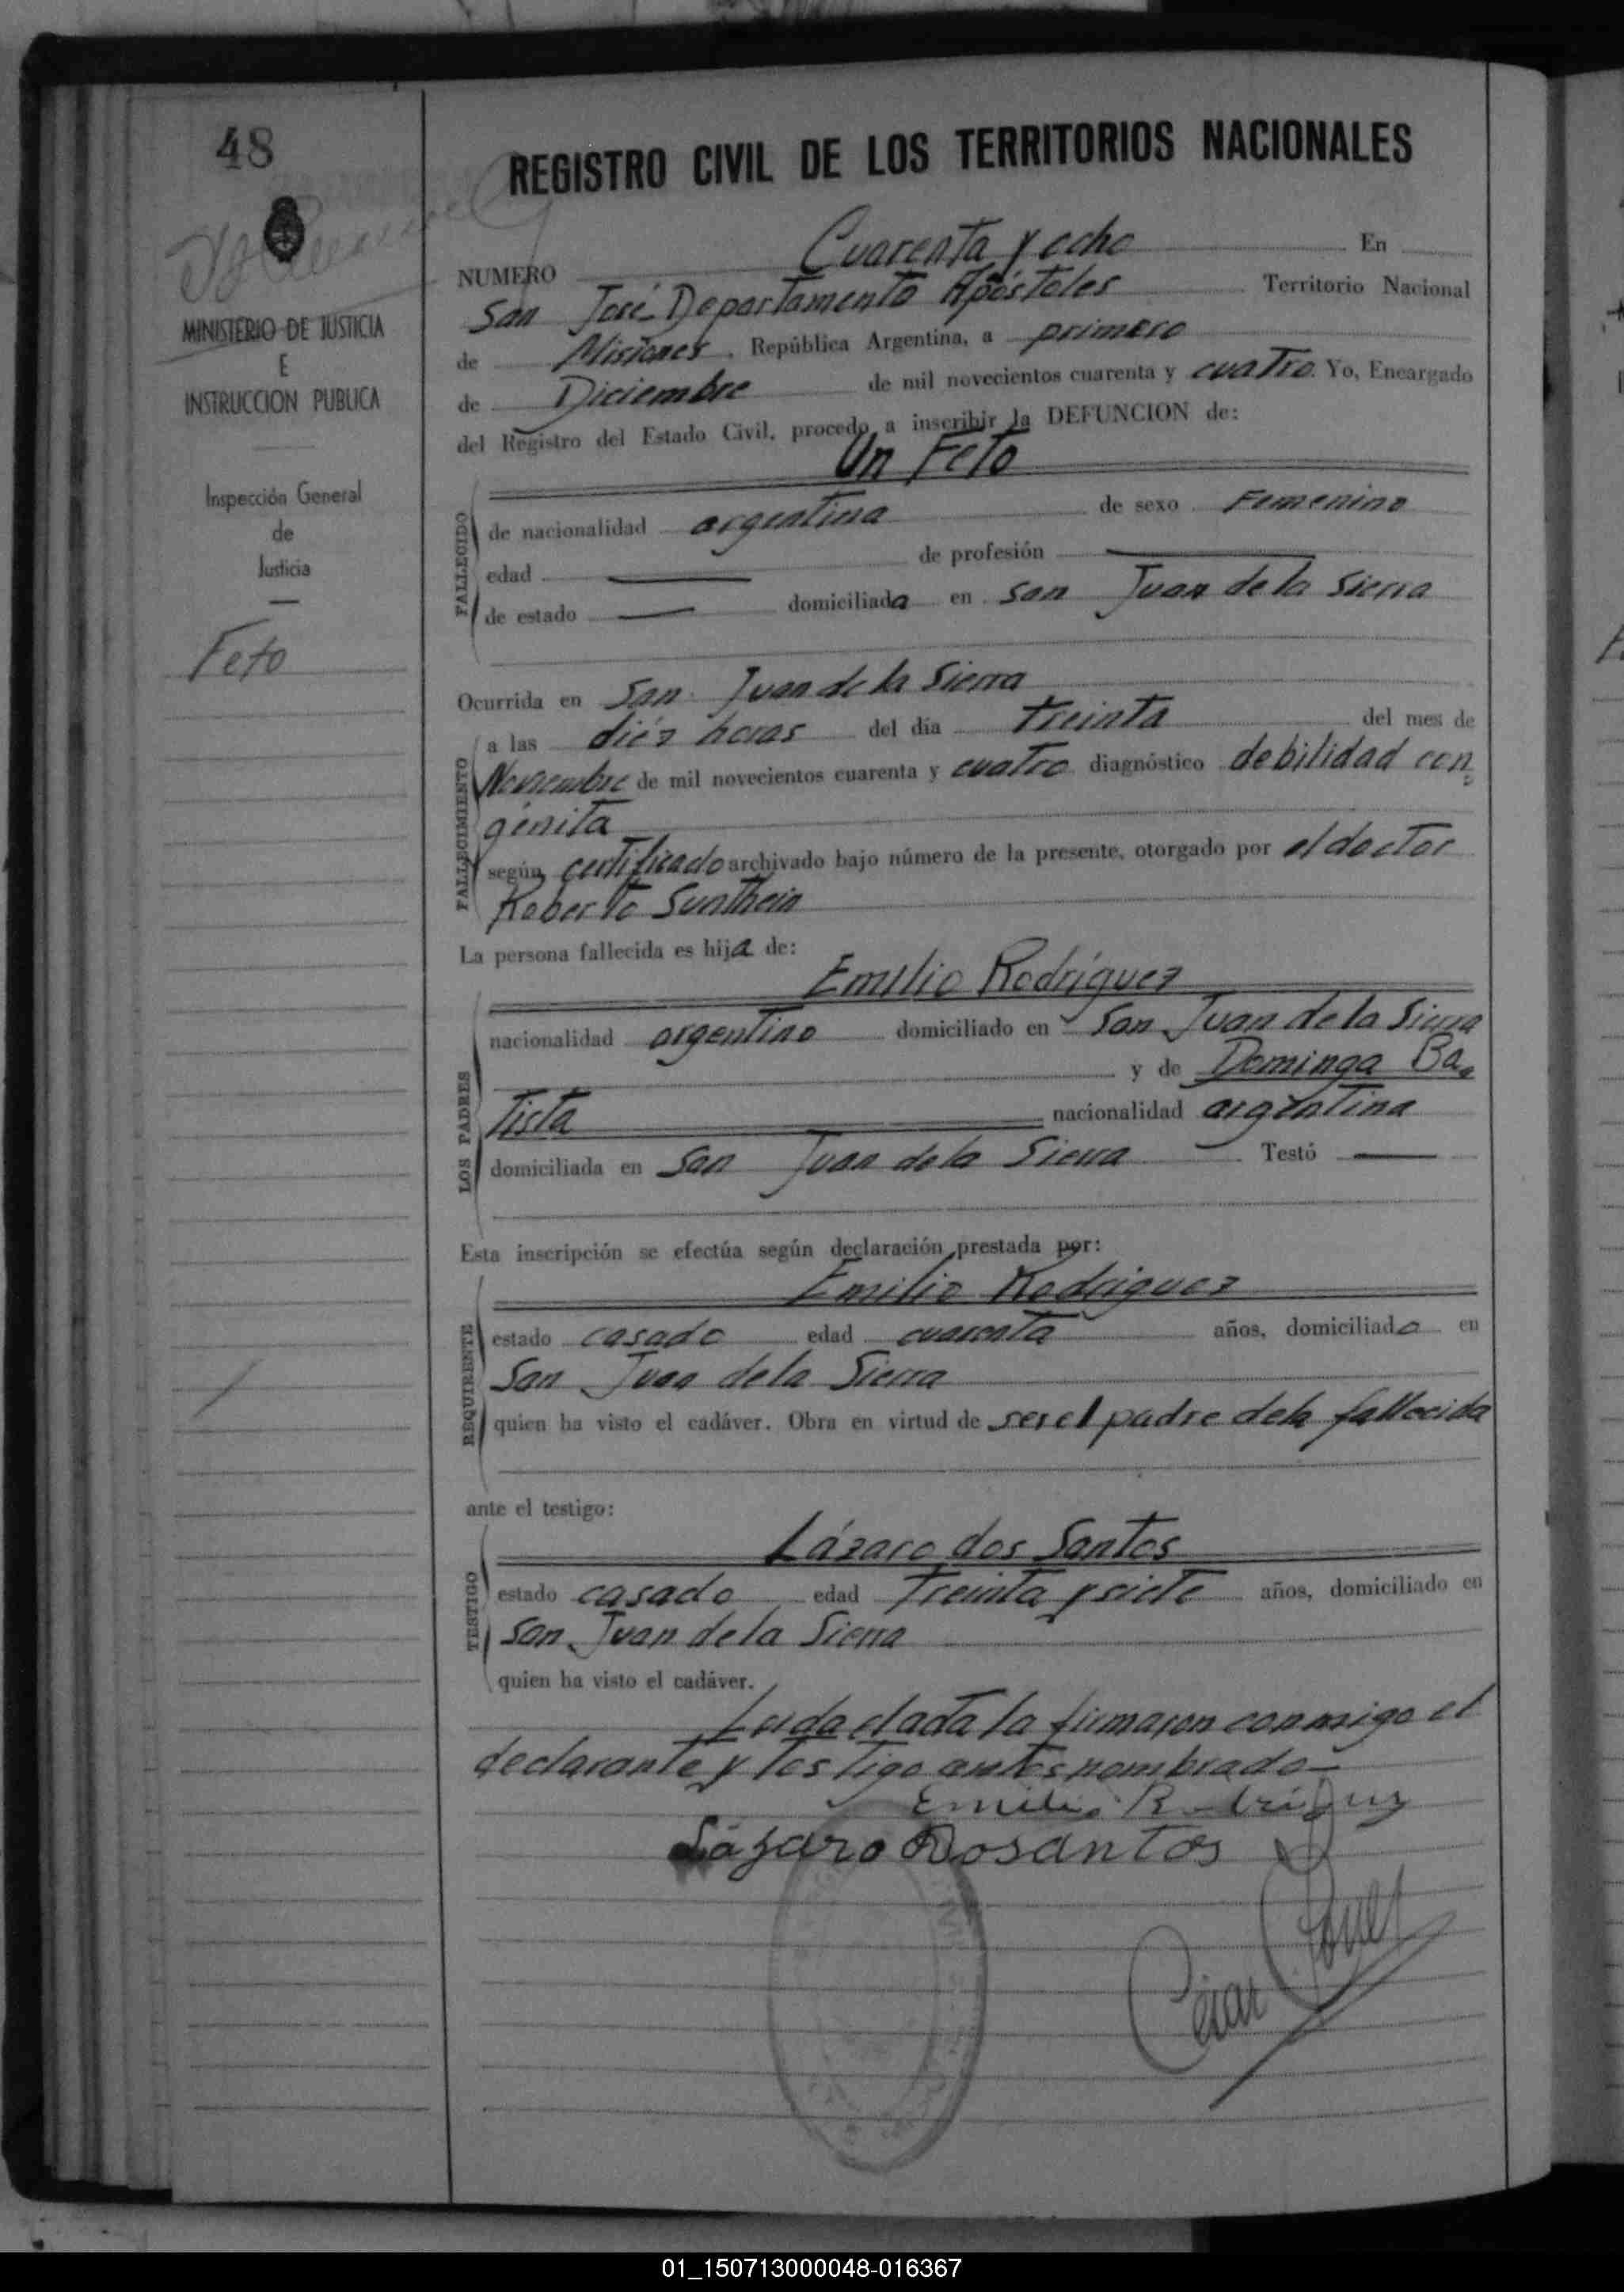 48
MINISTERIO DE JUSTICIA
E
INSTRUCCION PUBLICA
Inspección General
de
Justicia
Feto
REGISTRO CIVIL DE LOS TERRITORIOS NACIONALES
NUMERO Cuarenta y ocho En
San José Departamento Apóstoles Territorio Nacional
de Misiones, República Argentina, a primero
de Diciembre de mil novecientos cuarenta y cuatro. Yo, Encargado
del Registro del Estado Civil, procedo a inscribir la DEFUNCION de:
Un Feto
FALLECIDO
de nacionalidad argentina de sexo Femenino
edad — de profesión —
de estado — domiciliada en San Juan de la Sierra
Ocurrida en San Juan de la Sierra
FALLECIMIENTO
a las diéz horas del día treinta del mes de
Noviembre de mil novecientos cuarenta y cuatro diagnóstico debilidad con
génita
según certificado archivado bajo número de la presente, otorgado por el doctor
Roberto Sunthein
La persona fallecida es hija de:
Emilio Rodríguez
LOS PADRES
nacionalidad argentino domiciliado en San Juan de la Sierra
y de Dominga Ba
tista nacionalidad argentina
domiciliada en San Juan de la Sierra Testó —
Esta inscripción se efectúa según declaración prestada por:
Emilio Rodriguez
REQUIRENTE
estado casado edad cuarenta años, domiciliado en
San Juan de la Sierra
quien ha visto el cadáver. Obra en virtud de ser el padre de la fallecida
ante el testigo:
Lázaro dos Santos
TESTIGO
estado casado edad treinta y siete años, domiciliado en
San Juan de la Sierra
quien ha visto el cadáver.
Leida el acta la firmaron conmigo el
declarante y testigo antes nombrado-
Emilio Rodríguez
Lázaro Dosantos
César
01_150713000048-016367